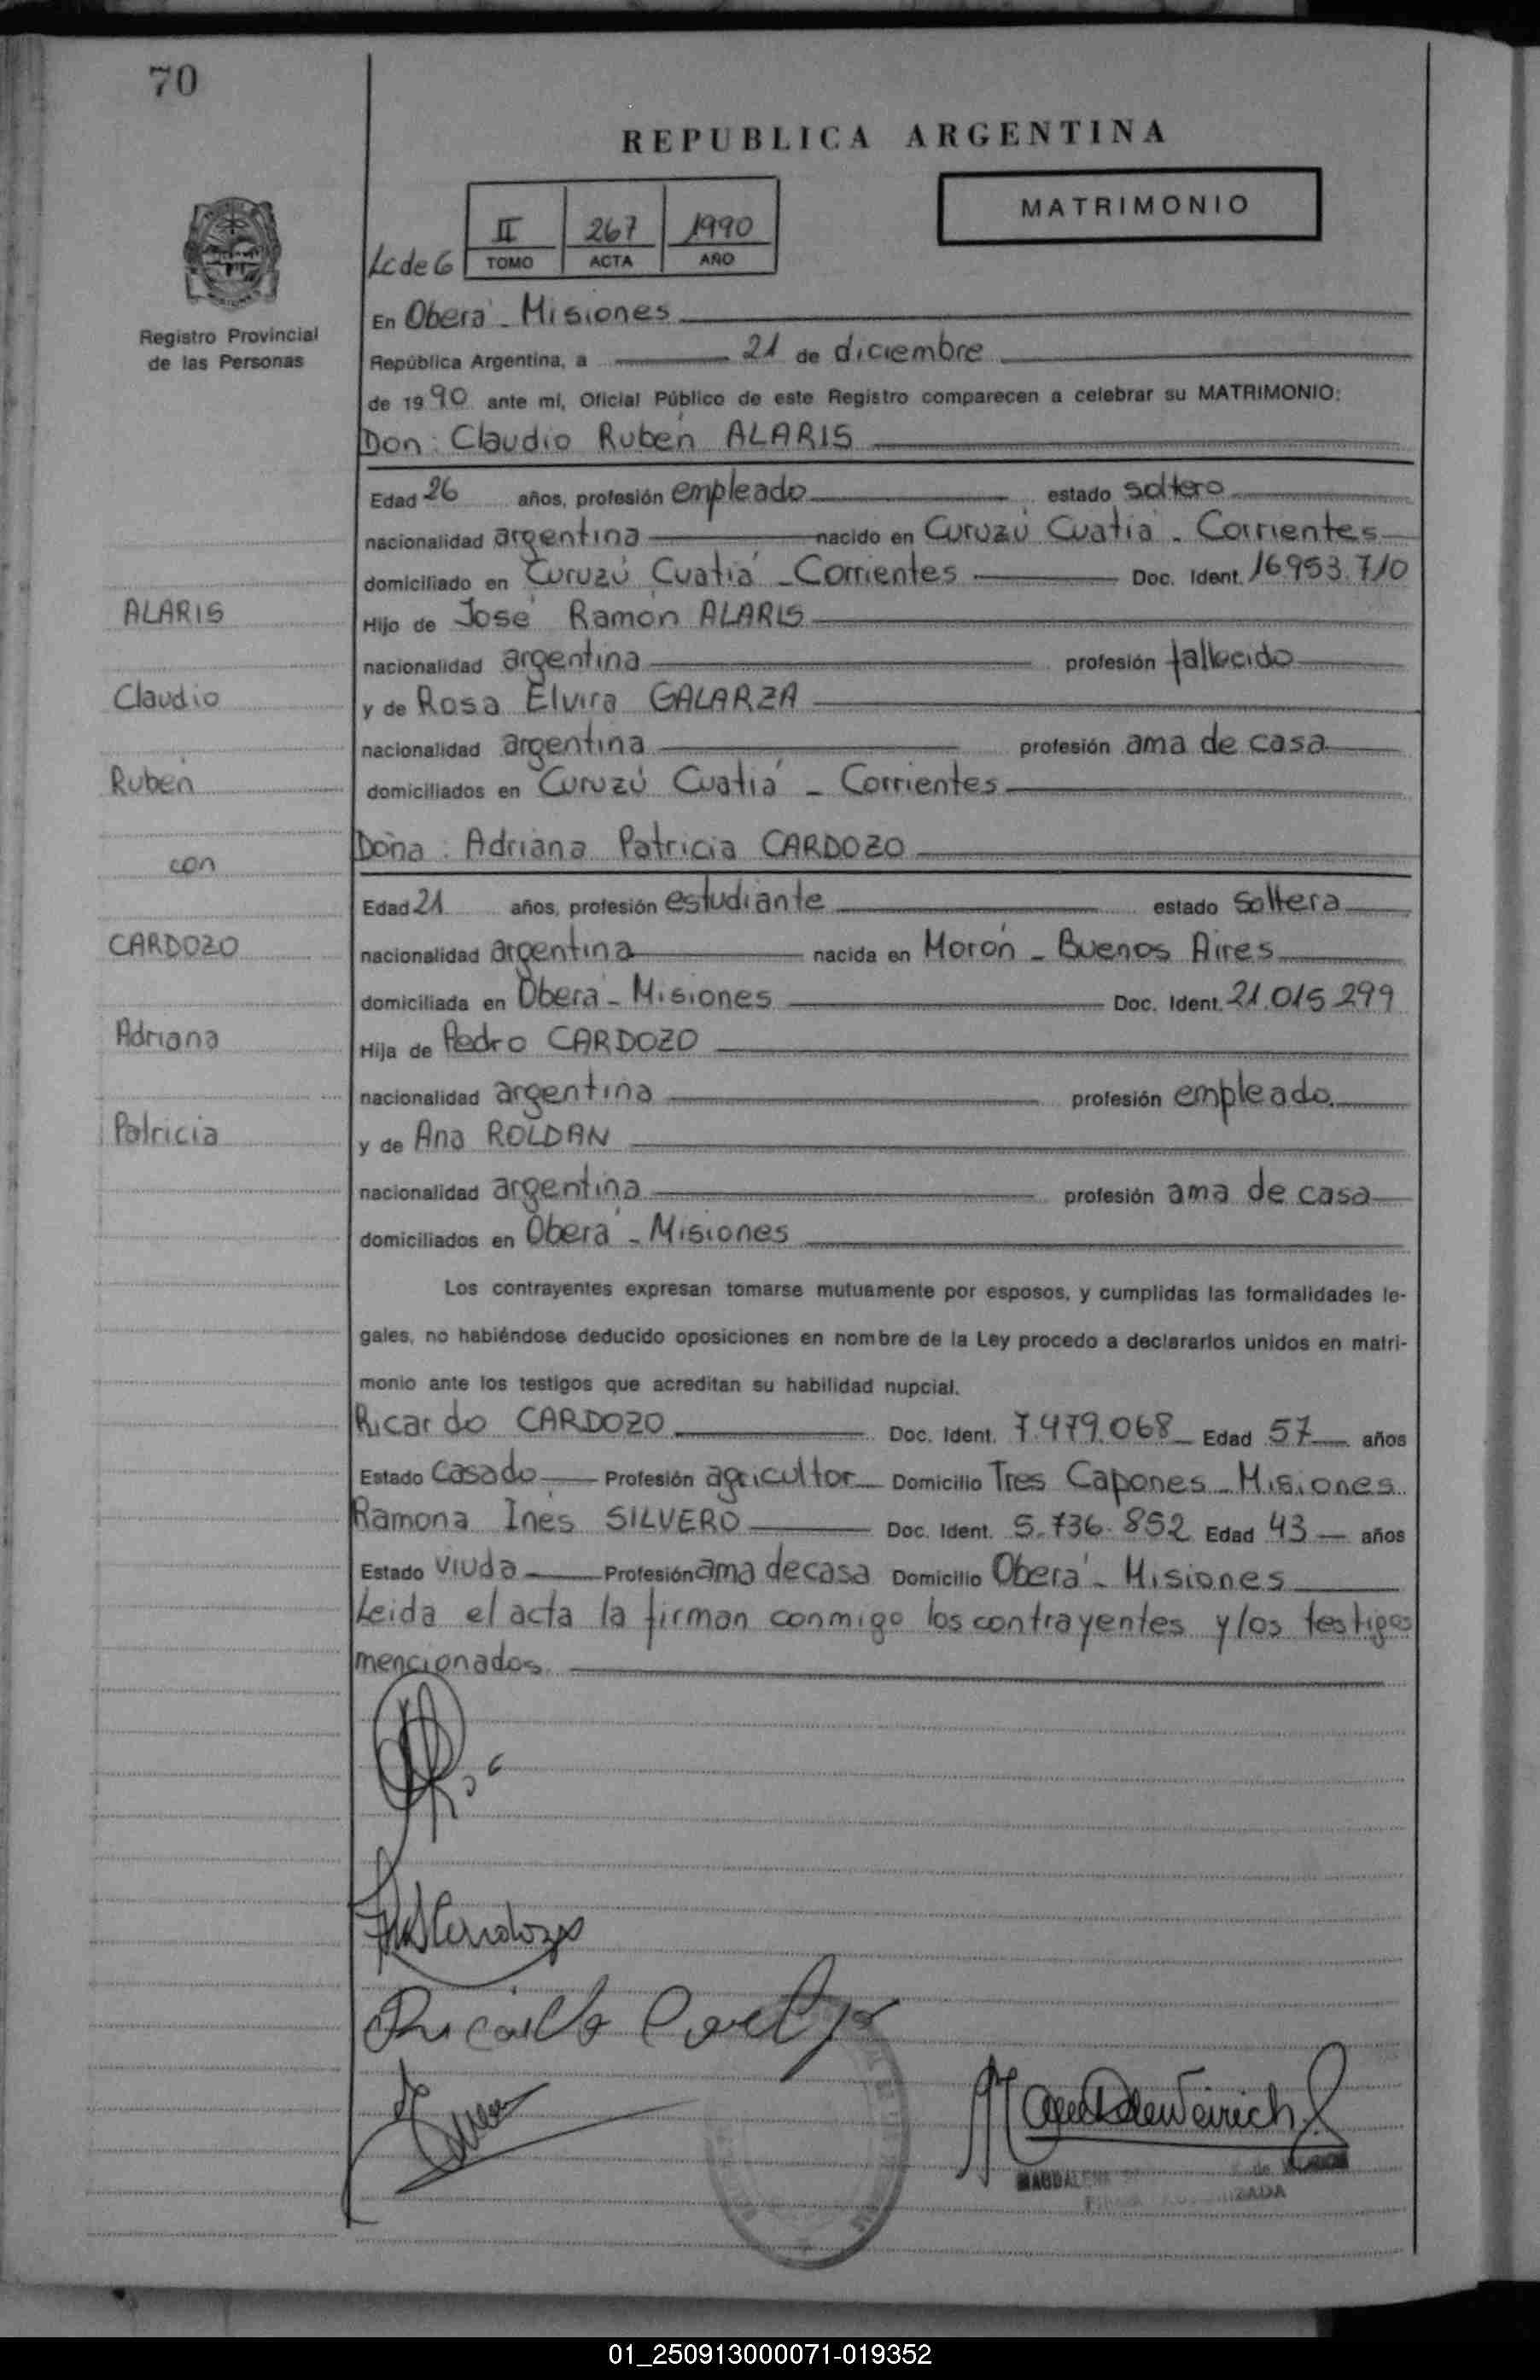 70
REPUBLICA ARGENTINA
MATRIMONIO
II 267 1990
Lc de G TOMO ACTA AÑO
Registro Provincial
de las Personas
En Oberá - Misiones
República Argentina, a 21 de diciembre
de 1990 ante mí, Oficial Público de este Registro comparecen a celebrar su MATRIMONIO:
Don: Claudio Rubén ALARIS
Edad 26 años, profesión empleado estado soltero
nacionalidad argentina nacido en Curuzú Cuatiá - Corrientes
domiciliado en Curuzú Cuatiá - Corrientes Doc. Ident. 16.953.710
ALARIS
Hijo de José Ramón ALARIS
nacionalidad argentina profesión fallecido
Claudio
y de Rosa Elvira GALARZA
nacionalidad argentina profesión ama de casa
Rubén
domiciliados en Curuzú Cuatiá - Corrientes
Doña: Adriana Patricia CARDOZO
con
Edad 21 años, profesión estudiante estado soltera
CARDOZO
nacionalidad argentina nacida en Morón - Buenos Aires
domiciliada en Oberá - Misiones Doc. Ident. 21.015.299
Adriana
Hija de Pedro CARDOZO
nacionalidad argentina profesión empleado
Patricia
y de Ana ROLDAN
nacionalidad argentina profesión ama de casa
domiciliados en Oberá - Misiones
Los contrayentes expresan tomarse mutuamente por esposos, y cumplidas las formalidades le-
gales, no habiéndose deducido oposiciones en nombre de la Ley procedo a declararlos unidos en matri-
monio ante los testigos que acreditan su habilidad nupcial.
Ricardo CARDOZO Doc. Ident. 7.479.068 Edad 57 años
Estado casado Profesión agricultor Domicilio Tres Capones - Misiones
Ramona Inés SILVERO Doc. Ident. 5.736.852 Edad 43 años
Estado viuda Profesión ama de casa Domicilio Oberá - Misiones
Leida el acta la firman conmigo los contrayentes y los testigos
mencionados.
MAGDALENA
01_250913000071-019352